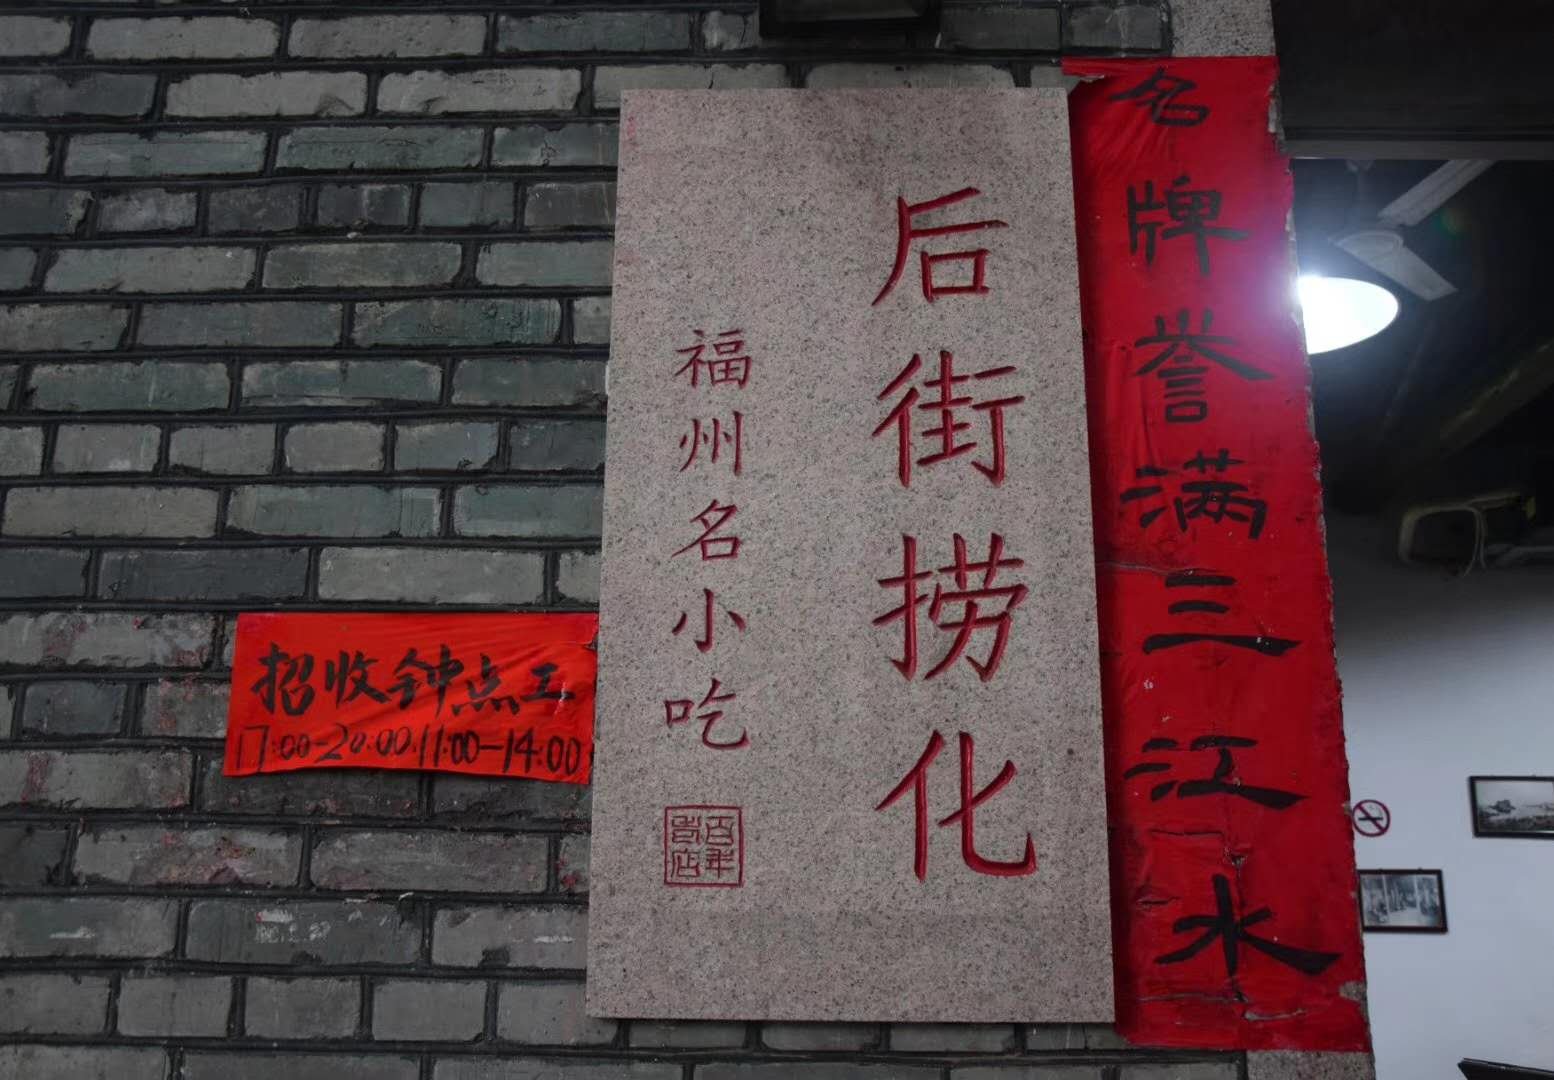 名牌誉满三江水
后街捞化
福州名小吃
百年
老店
招收钟点工
17:00-20:00.11:00-14:00